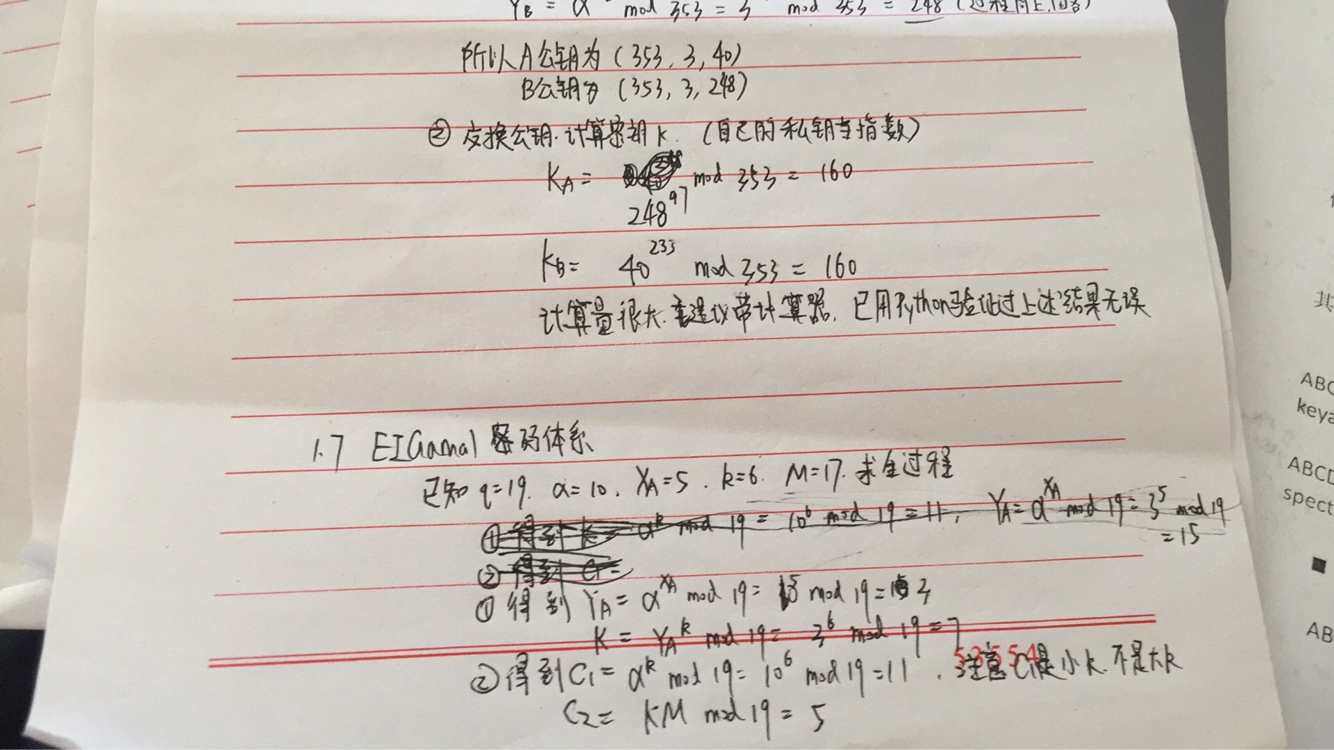 Y_B = α mod 353 = 3 mod 353 = 248 (过程同上,
所以A公钥为 (353, 3, 40)
B公钥为 (353, 3, 248)
② 交换公钥.计算密钥K. (自己的私钥当指数)
K_A = mod 353 = 160
248^97
K_B = 40^233 mod 353 = 160
计算量很大. 建议带计算器. 已用Python验证过上述结果无误
1.7 ElGamal 密码体系
已知 q=19. α=10. X_A=5. k=6. M=17. 求全过程
① 得到 K = α^k mod 19 = 10^6 mod 19 = 11, Y_A = α^X_A mod 19 = 3^5 mod 19
= 15
② 得到 C_1 =
① 得到 Y_A = α^X_A mod 19 = mod 19 = 3
K = Y_A^k mod 19 = 3^6 mod 19 = 7
② 得到 C_1 = α^k mod 19 = 10^6 mod 19 = 11 . 注意C_1是小k. 不是大K
C_2 = KM mod 19 = 5
ABC
keya
ABCD
spect
AB